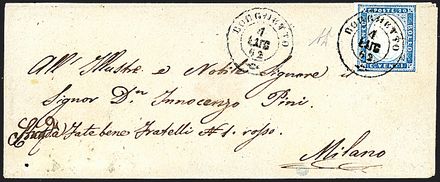 BORGHETTO
4
LUG
62
BORGHETTO
4
LUG
62
POSTE
BOLLO
C. VENTI
All' Illustre e Nobile Signore il
Signor D.n Innocenzo Pini.
Fate bene Fratelli N 1. rosso.
Milano